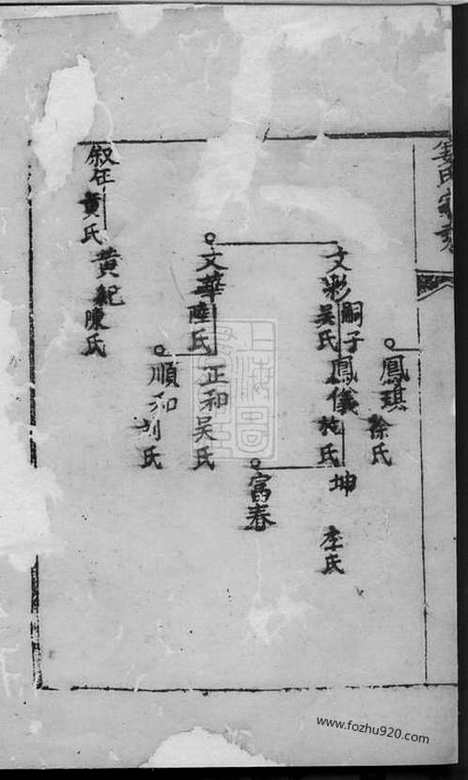 姜氏家譜
鳳琪
徐氏
文彩
吴氏
嗣子
鳳儀
施氏
坤
李氏
富春
文華
陸氏
正和
吴氏
順和
氏
叙任
黄氏
黄紀
陳氏
www.fozhu920.com